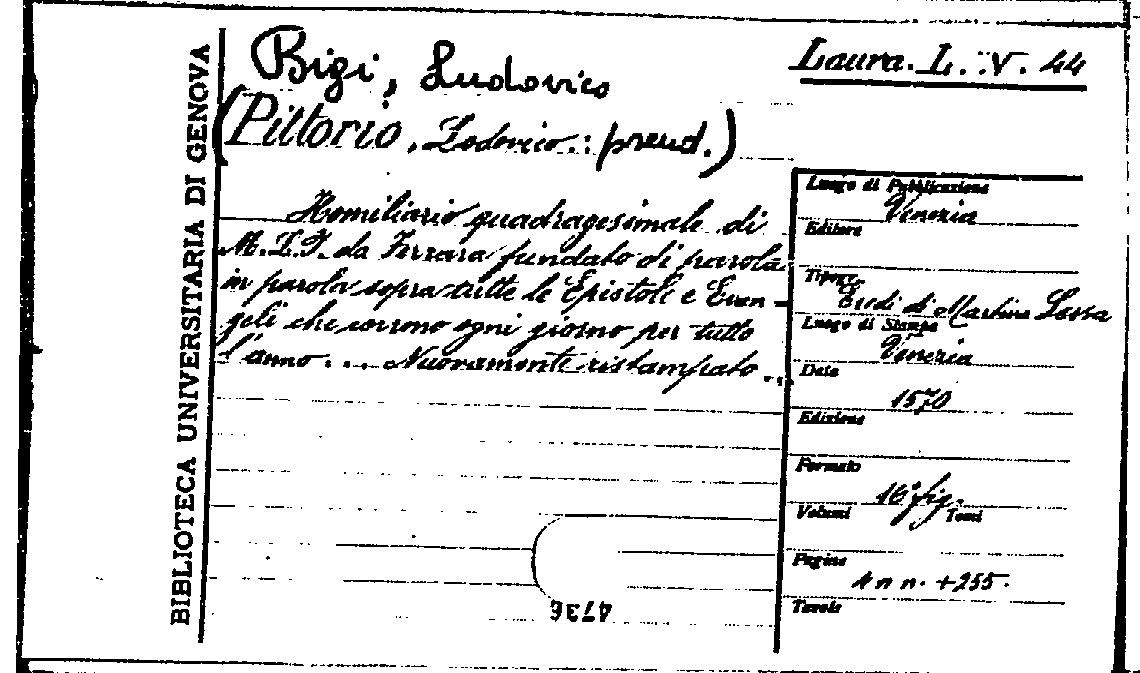 BIBLIOTECA UNIVERSITARIA DI GENOVA
Bigi, Ludovico
(Pittorio, Lodovico: pseud.)
Laura. L. V. 44
Homiliario quadragesimale di
M. L. P. da Ferrara fundato di parola
in parola sopra tutte le Epistole e Evan-
geli che corrono ogni giorno per tutto
l'anno... Nuovamente ristampato...
Luogo di Pubblicazione
Venezia
Editore
Tipogr.
Eredi di Martino Sessa
Luogo di Stampa
Venezia
Data
1570
Edizione
Formato
16° fig.
Volumi Tomi
Pagine
4 n n. +255.
Tavole
4736